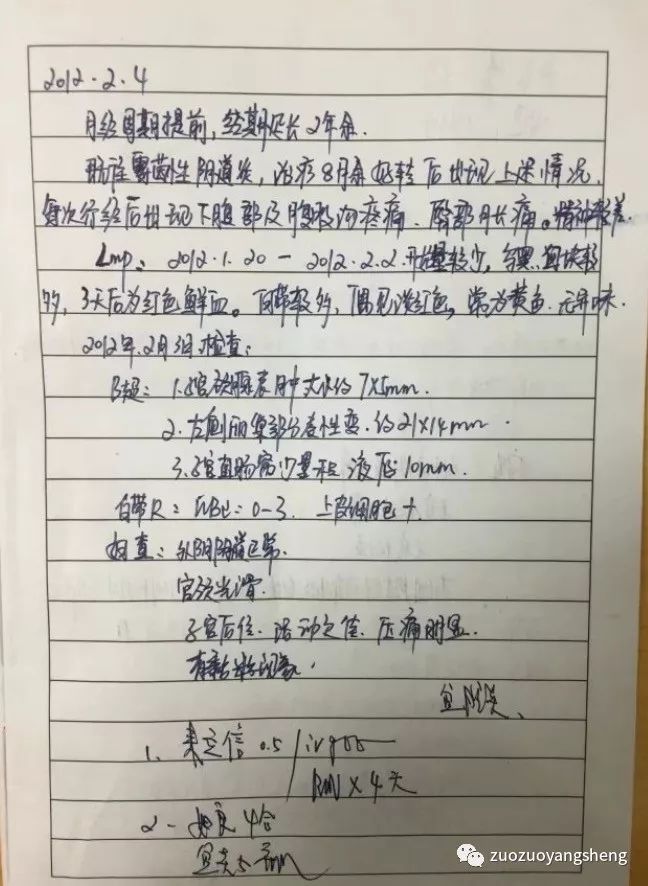 2012.2.4
月经周期提前,经期延长2年余.
既往霉菌性阴道炎,治疗8月余好转后出现上述情况,
每次行经后出现下腹部及腹股沟疼痛.唇部月长痛。精神较差
Lmp: 2012.1.20 - 2012.2.2.开始量较少,
3天后为红色鲜血。白带较多,偶见淡红色,常为黄色.无异味.
2012年2月3日检查:
B超:1.宫颈腺囊肿 大小约7×5mm.
2.左侧卵巢部分囊性变.约21×14mm.
3.子宫直肠窝少量积液 厚10mm.
白带R:WBC:0-3. 上皮细胞+.
妇查:外阴阴道正常.
宫颈光滑.
子宫后位.活动欠佳.压痛明显.
1. 来立信 0.5 / iv gtt
×4天
2- 4合
zuozuoyangsheng